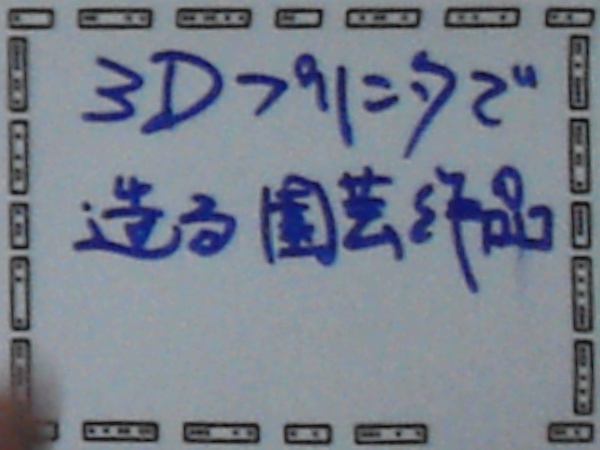 3Dプリンタで
造る園芸部品